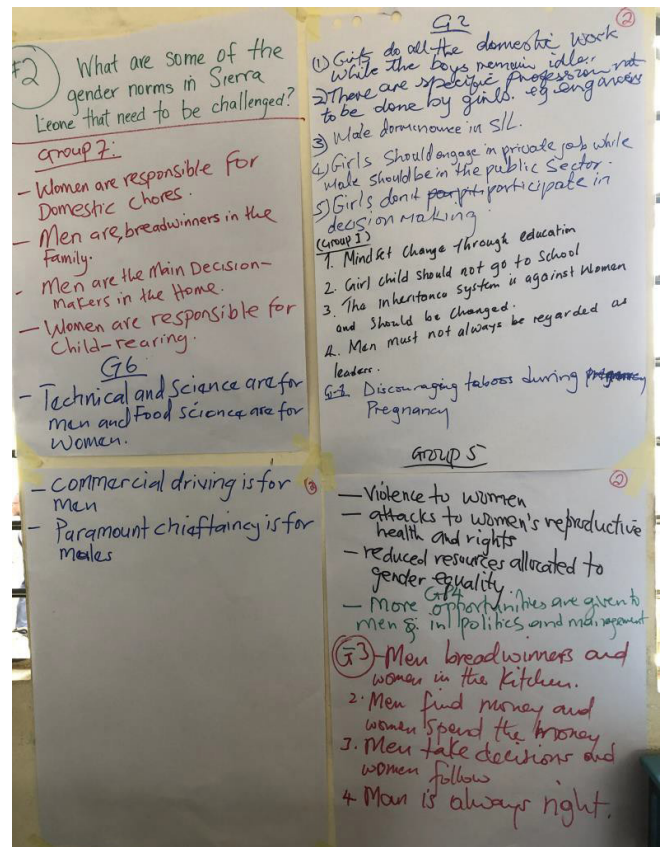 #2
What are some of the
gender norms in Sierra
Leone that need to be challenged?
Group 7:
- Women are responsible for
Domestic Chores.
- Men are breadwinners in the
Family.
- Men are the Main Decision-
makers in the Home.
- Women are responsible for
Child-rearing.
G6
- Technical and Science are for
men and Food science are for
Women.
- Commercial driving is for
men
- Paramount chieftaincy is for
males
3
G2
2
1) Girls do all the domestic work
while the boys remain idle.
2) There are specific profession not
to be done by girls. eg engineers
3) Male dorminounce in S/L.
4) Girls Should engage in private job while
male should be in the public Sector.
5) Girls don't participate in
decision making
(Group 1)
1. Mindset change through education
2. Girl child should not go to School
3. The inheritance system is against women
and should be changed.
4. Men must not always be regarded as
leaders.
Discouraging taboos during pregnancy
Pregnancy
Group 5
2
- Violence to women
- attacks to women's reproductive
health and rights
- reduced resources allocated to
gender equality.
GP4
- More opportunities are given to
men in politics and management
G3 - Men breadwinners and
women in the Kitchen.
2. Men find money and
women spend the money
3. Men take decisions and
women follow
4 Man is always right.